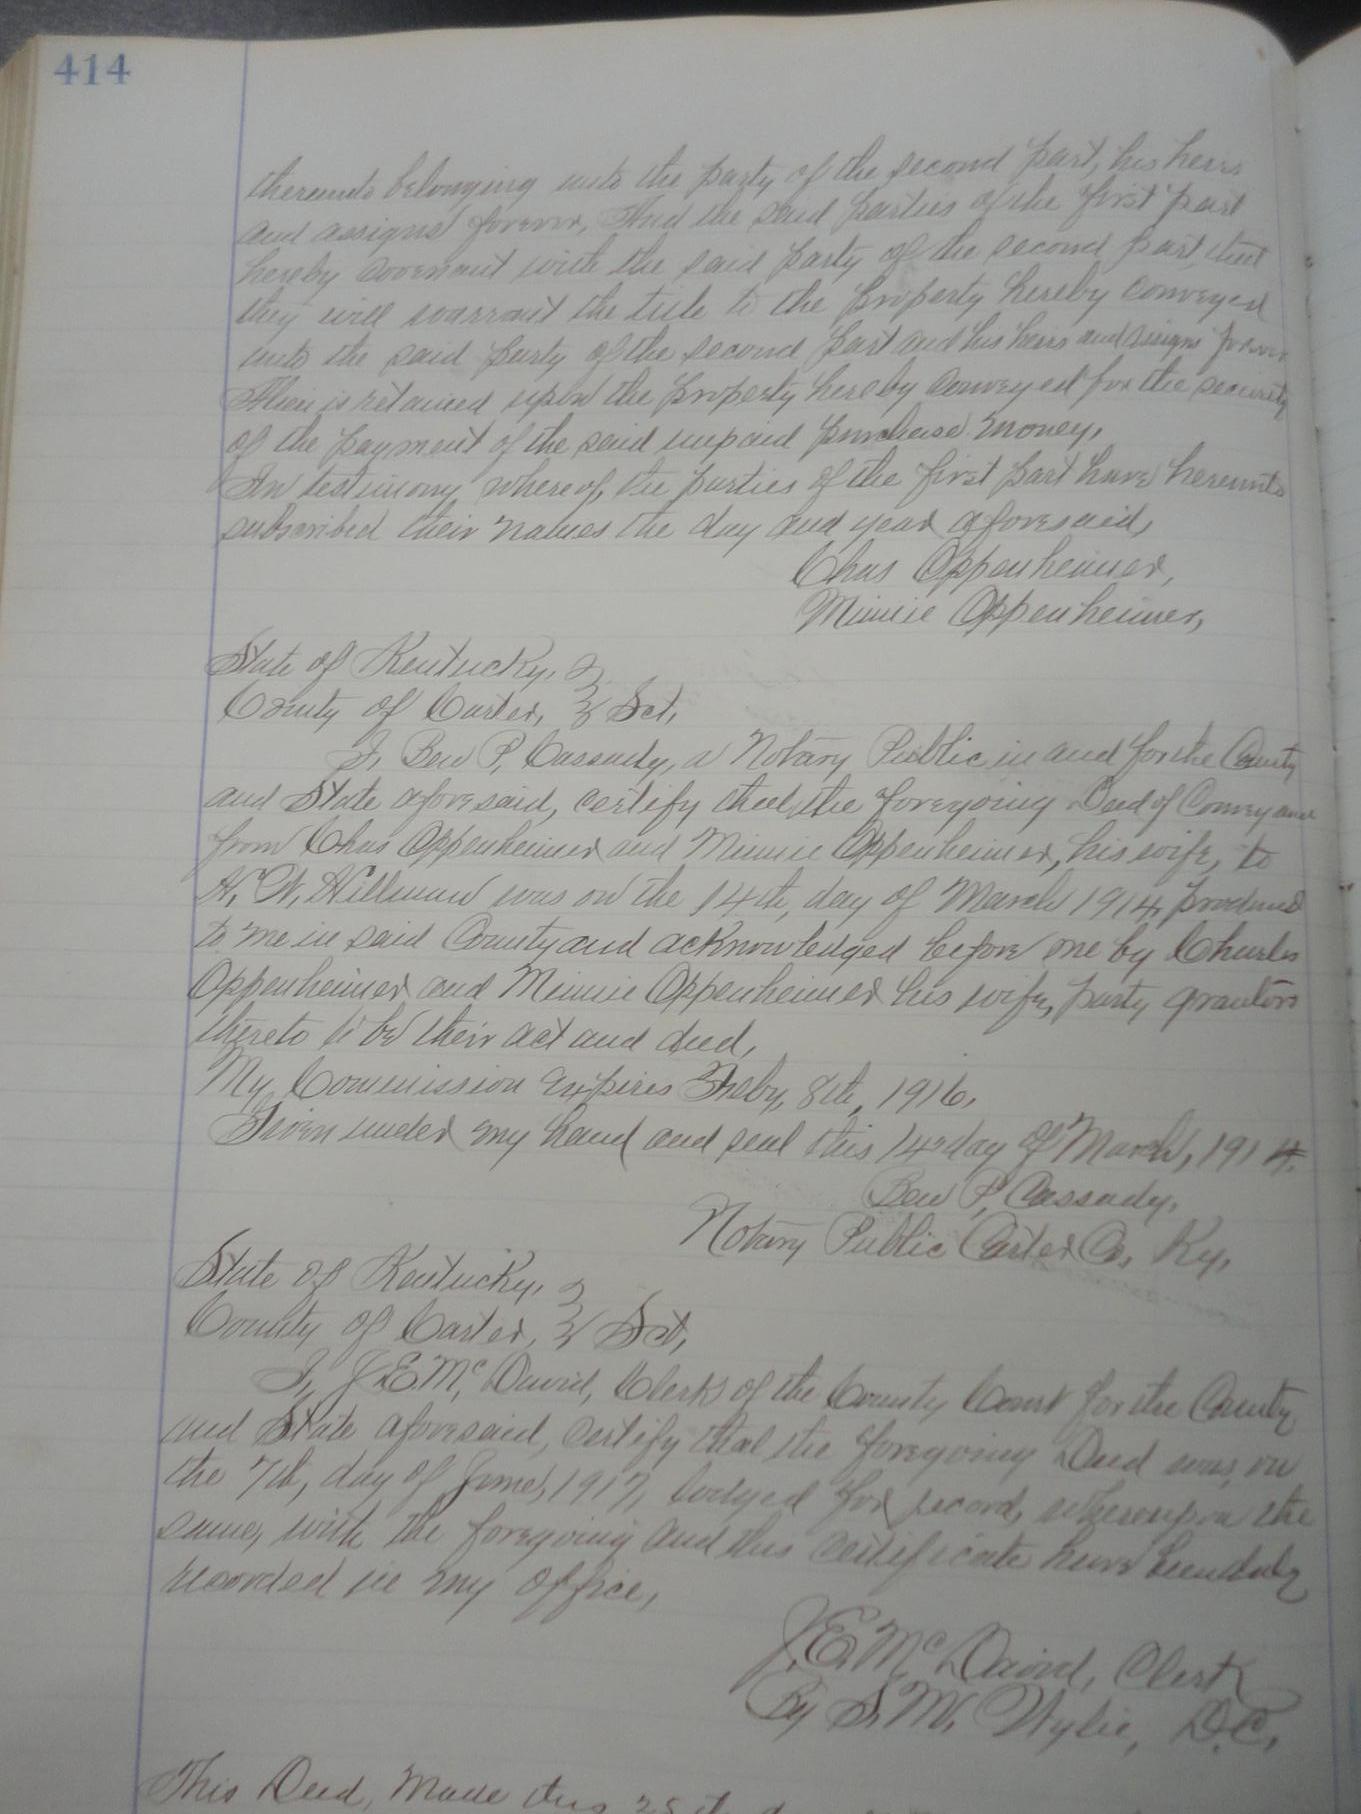 414
thereunto belonging unto the party of the second part, his heirs
and assigns forever, And the said parties of the first part
hereby covenant with the said party of the second part, that
they will warrant the title to the property hereby conveyed
unto the said party of the second part and his heirs and assigns forever
A lien is retained upon the property hereby conveyed for the security
of the payment of the said unpaid purchase money,
In testimony whereof, the parties of the first part have hereunto
subscribed their names the day and year aforesaid,
Chas Oppenheimer,
Minnie Oppenheimer,
State of Kentucky,
County of Carter, } Sct,
I, Ben P, Cassady, a Notary Public in and for the County
and State aforesaid, certify that the foregoing Deed of Conveyance
from Chas Oppenheimer and Minnie Oppenheimer, his wife, to
H. W. Hillman was on the 14th, day of March 1914, produced
to me in said County and acknowledged before me by Charles
Oppenheimer and Minnie Oppenheimer his wife, party grantors
thereto to be their act and deed,
My Commission Expires Feby, 8th, 1916,
Given under my hand and seal this 14" day of March, 1914.
Ben P, Cassady,
Notary Public Carter Co, Ky,
State of Kentucky,
County of Carter, } Sct,
I, J.E. Mc, David, Clerk of the County Court for the County
and State aforesaid, certify that the foregoing Deed was, on
the 7th, day of June, 1917, lodged for record, whereupon the
same, with the foregoing and this certificate have been duly
recorded in my office,
J.E. Mc David, Clerk
By S. M. Wylie, D.C.
This Deed, Made this 28th